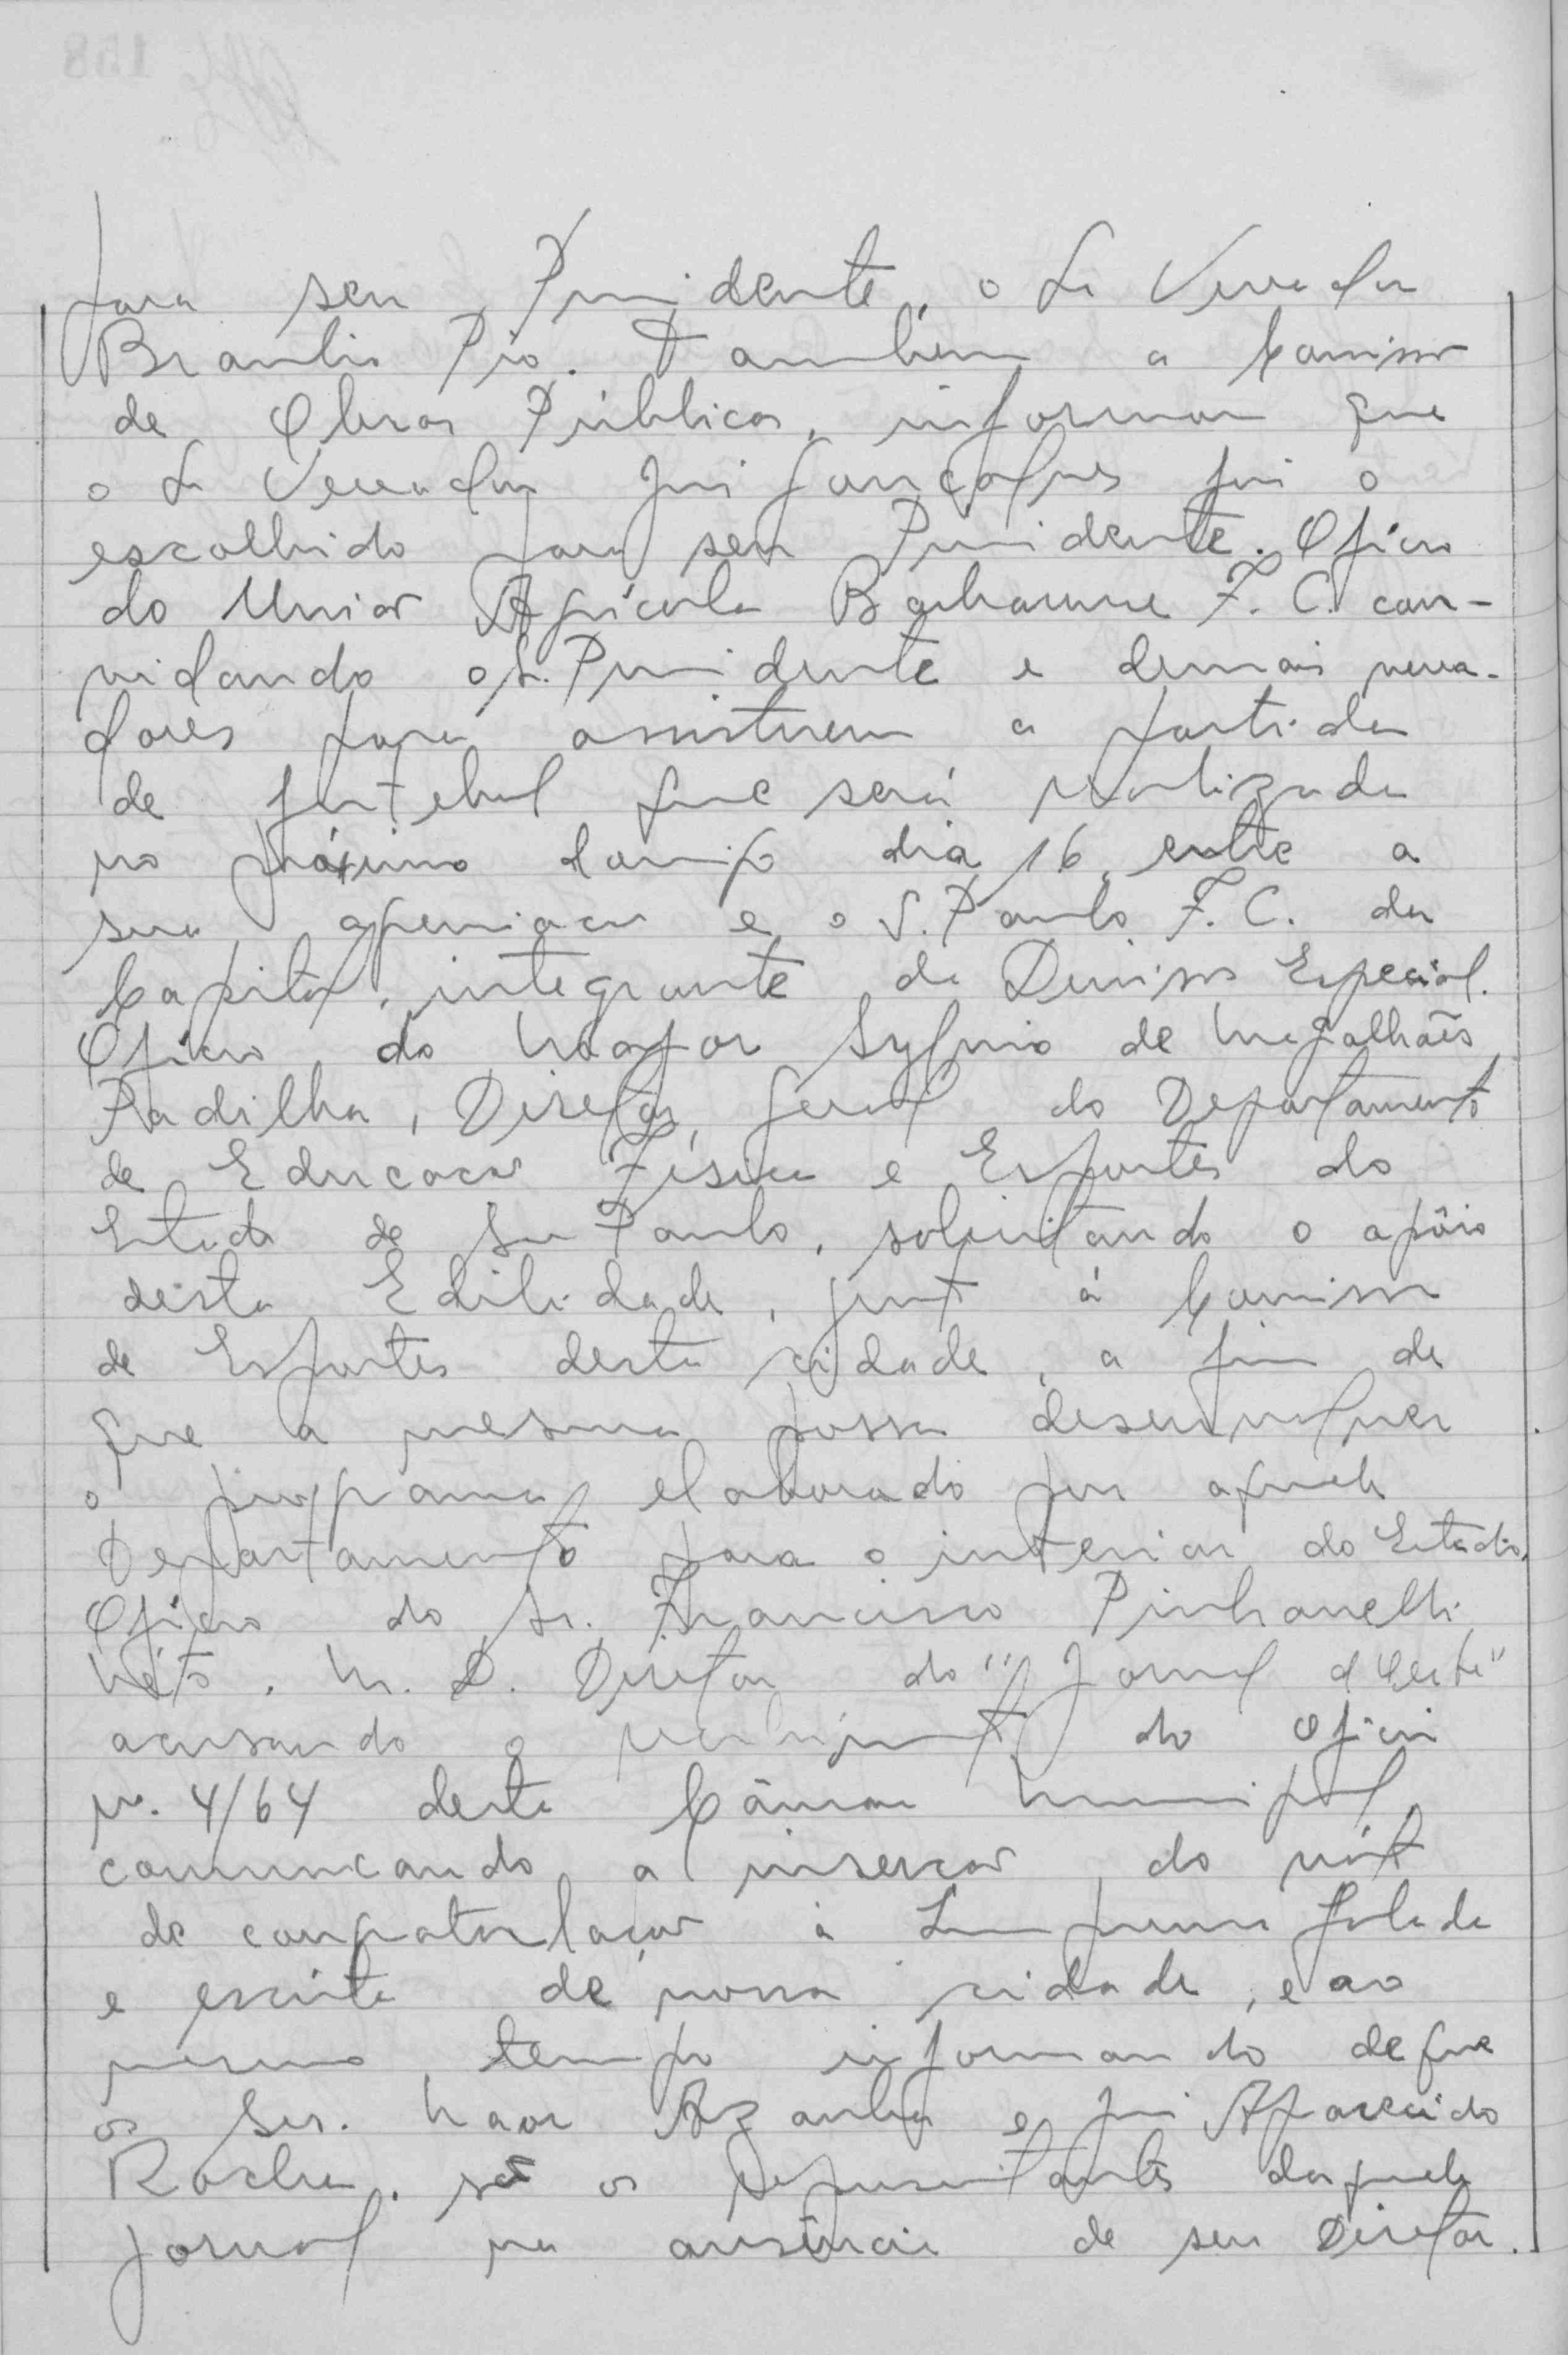 para seu Presidente, o Sr Vereador
Braulio Pio. Também a Comissão
de Obras Públicas, informou que
o Sr Vereador José Gonçalves foi o
escolhido para seu Presidente. Ofício
do União Agrícola Barbarense F. C. con-
vidando o Sr. Presidente e demais verea-
dores para assistirem a partida
de futebol que será realizada
no próximo domingo dia 16, entre a
sua agremiação e o S. Paulo F. C. da
Capital, integrante da Divisão Especial.
Ofício do Major Sylvio de Magalhães
Padilha, Diretor Geral do Departamento
de Educação Física e Esportes do
Estado de São Paulo, solicitando o apôio
desta Edilidade, junto à Comissão
de Esportes desta cidade, a fim de
que a mesma possa desenvolver
o programa elaborado por aquele
Departamento para o interior do Estado.
Ofício do Sr. Francisco Pinhanelli
Néto, M. D. Diretor do "Jornal d'Oeste"
acusando o recebimento do ofício
nº. 4/64 desta Câmara Municipal,
comunicando a inserção do vóto
de congratulação à Imprensa falada
e escrita de nossa cidade, e ao
mesmo tempo informando de que
os Srs. Azanha e José Aparecido
Rocha, são os representantes daquele
jornal na ausência de seu Diretor.